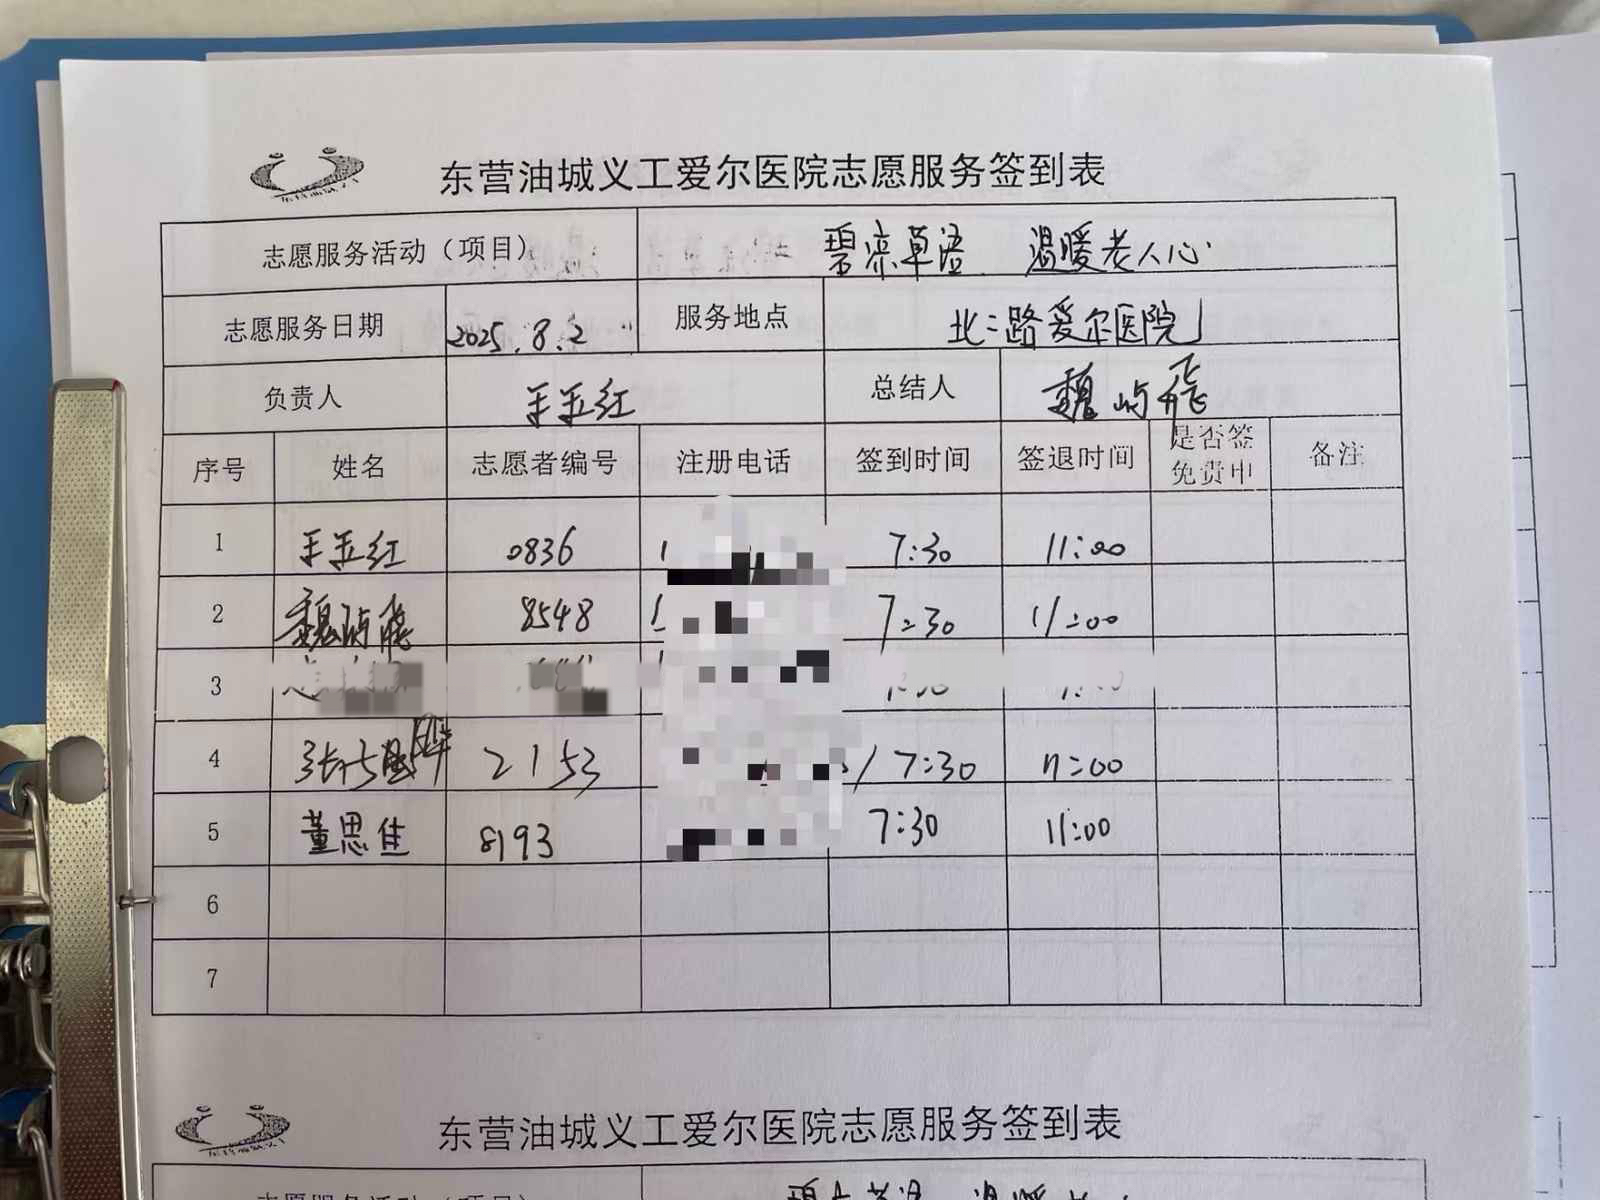 东营油城义工爱尔医院志愿服务签到表
志愿服务活动（项目） 温暖老人心
志愿服务日期 2025.8.2 服务地点 北二路爱尔医院
负责人 王玉红 总结人 魏屿飛
序号 姓名 志愿者编号 注册电话 签到时间 签退时间 是否签免费申 备注
1 王玉红 0836 7:30 11:00
2 魏屿飛 8548 7:30 11:00
3
4 2153 7:30 11:00
5 董思佳 8193 7:30 11:00
6
7
东营油城义工爱尔医院志愿服务签到表
志愿服务活动（项目）